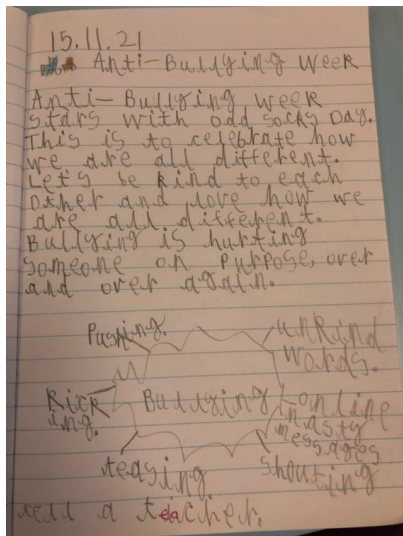 15.11.21
Anti-Bullying Week
Anti-Bullying Week
stars with odd socks Day.
This is to celebrate how
we are all different.
Let's be kind to each
other and love how we
are all different.
Bullying is hurting
someone on purpose, over
and over again.
Pushing.
unkind
words.
Kick
ing.
Bullying
online
nasty
messages
teasing
shouting
tell a teacher.